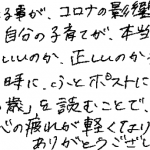 る事が、コロナの影響
自分の子育てが、本当
しいのか、正しいのか
時に、ふとポストに
歳」を読むことで、
心の疲れが軽くなり
ありがとうござ